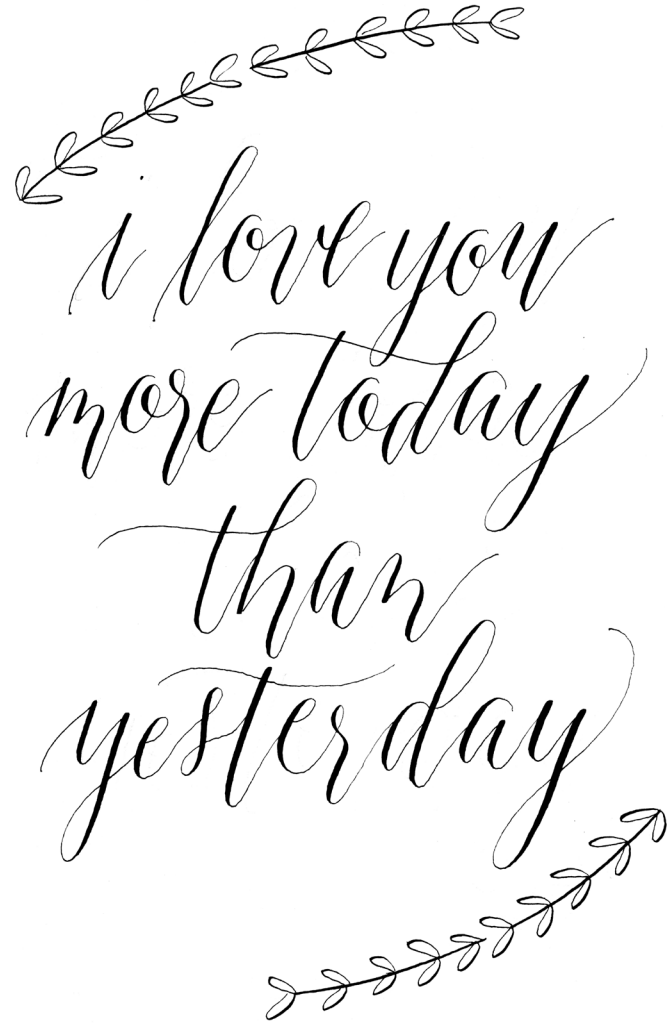 i love you
more today
than
yesterday